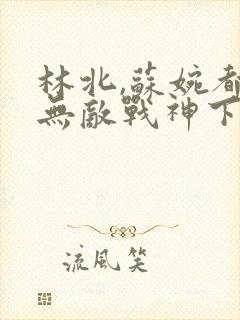 林北,蘇婉都
無敵戰神下
流風笑